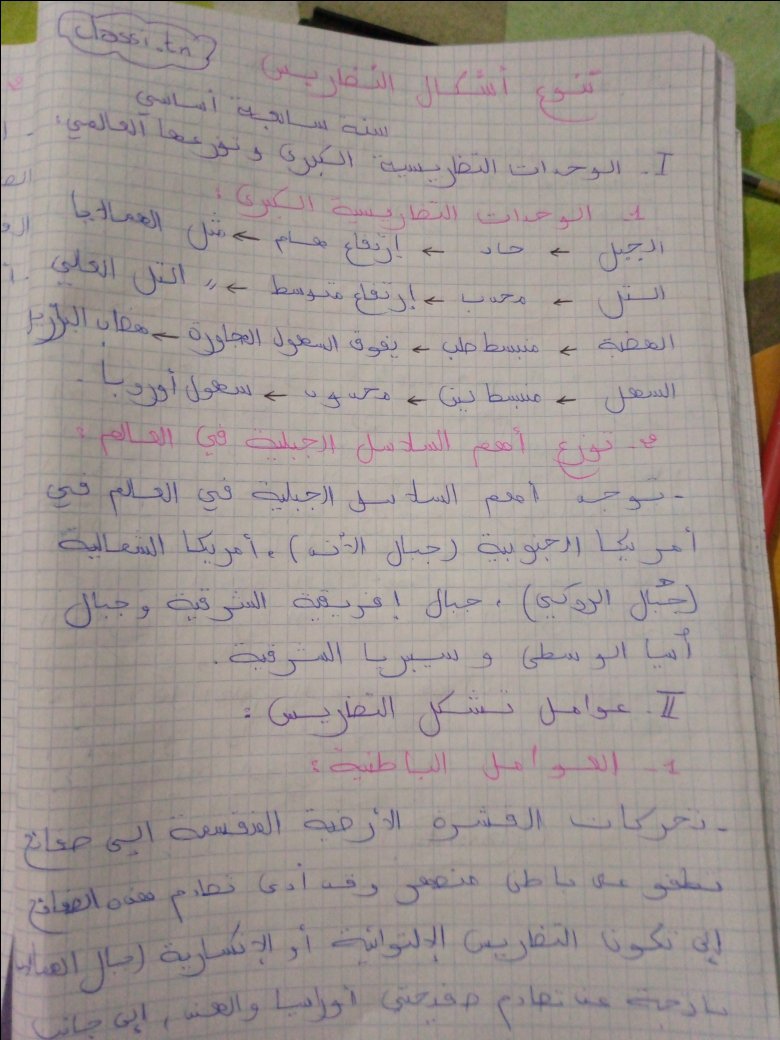 classi.tn
تنوع أشكال التضاريس
سنة سابعة أساسي
I - الوحدات التظريسية الكبرى وتوزعها العالمي:
1 - الوحدات التظريسية الكبرى:
الجبل ← حاد ← إرتفاع هام ← مثل الهمالايا
التل ← محدب ← إرتفاع متوسط ← " التل العلي
الهضبة ← منبسط صلب ← يفوق السهول المجاورة ← هضاب البرازيل
السهل ← منبسط لين ← محدود ← سهول أوروبا.
2 - توزع أهم السلاسل الجبلية في العالم:
- توجد أهم السلاسل الجبلية في العالم في
أمريكا الجنوبية (جبال الأند)، أمريكا الشمالية
(جبال الروكي)، جبال إفريقية الشرقية وجبال
آسيا الوسطى وسيبريا الشرقية.
II - عوامل تشكل التظاريس:
1 - العوامل الباطنية:
- تحركات القشرة الأرضية المنقسمة إلى صفائح
تطفو على باطن منصهر وقد أدى تصادم هذه الصفائح
إلى تكون التظاريس الإلتوائية أو الإنكسارية (جبال الهمالايا
ناتجة عن تصادم صفيحتي أوراسيا والهند، إلى جانب